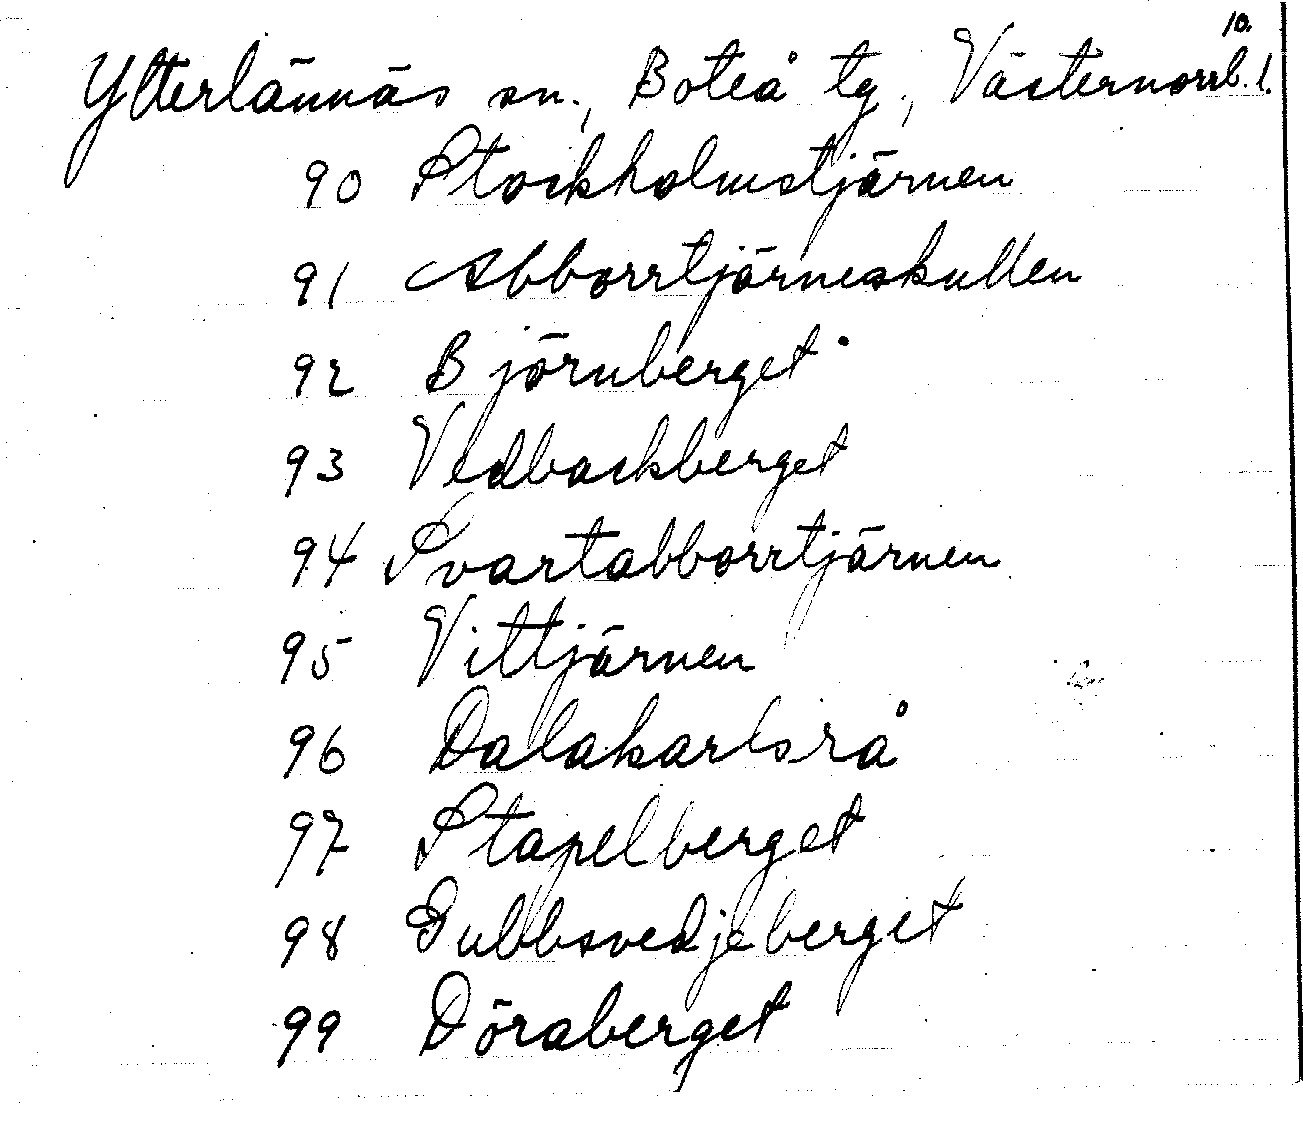 10.
Ytterlännäs sn., Boteå tg., Västernorrl. l.
90 Stockholmstjärnen
91 Abborrtjärneskullen
92 Björnberget
93 Vedbackberget
94 Svartabborrtjärnen
95 Vittjärnen
96 Dalakarlsrå
97 Stapelberget
98 Gubbsvedjeberget
99 Döraberget